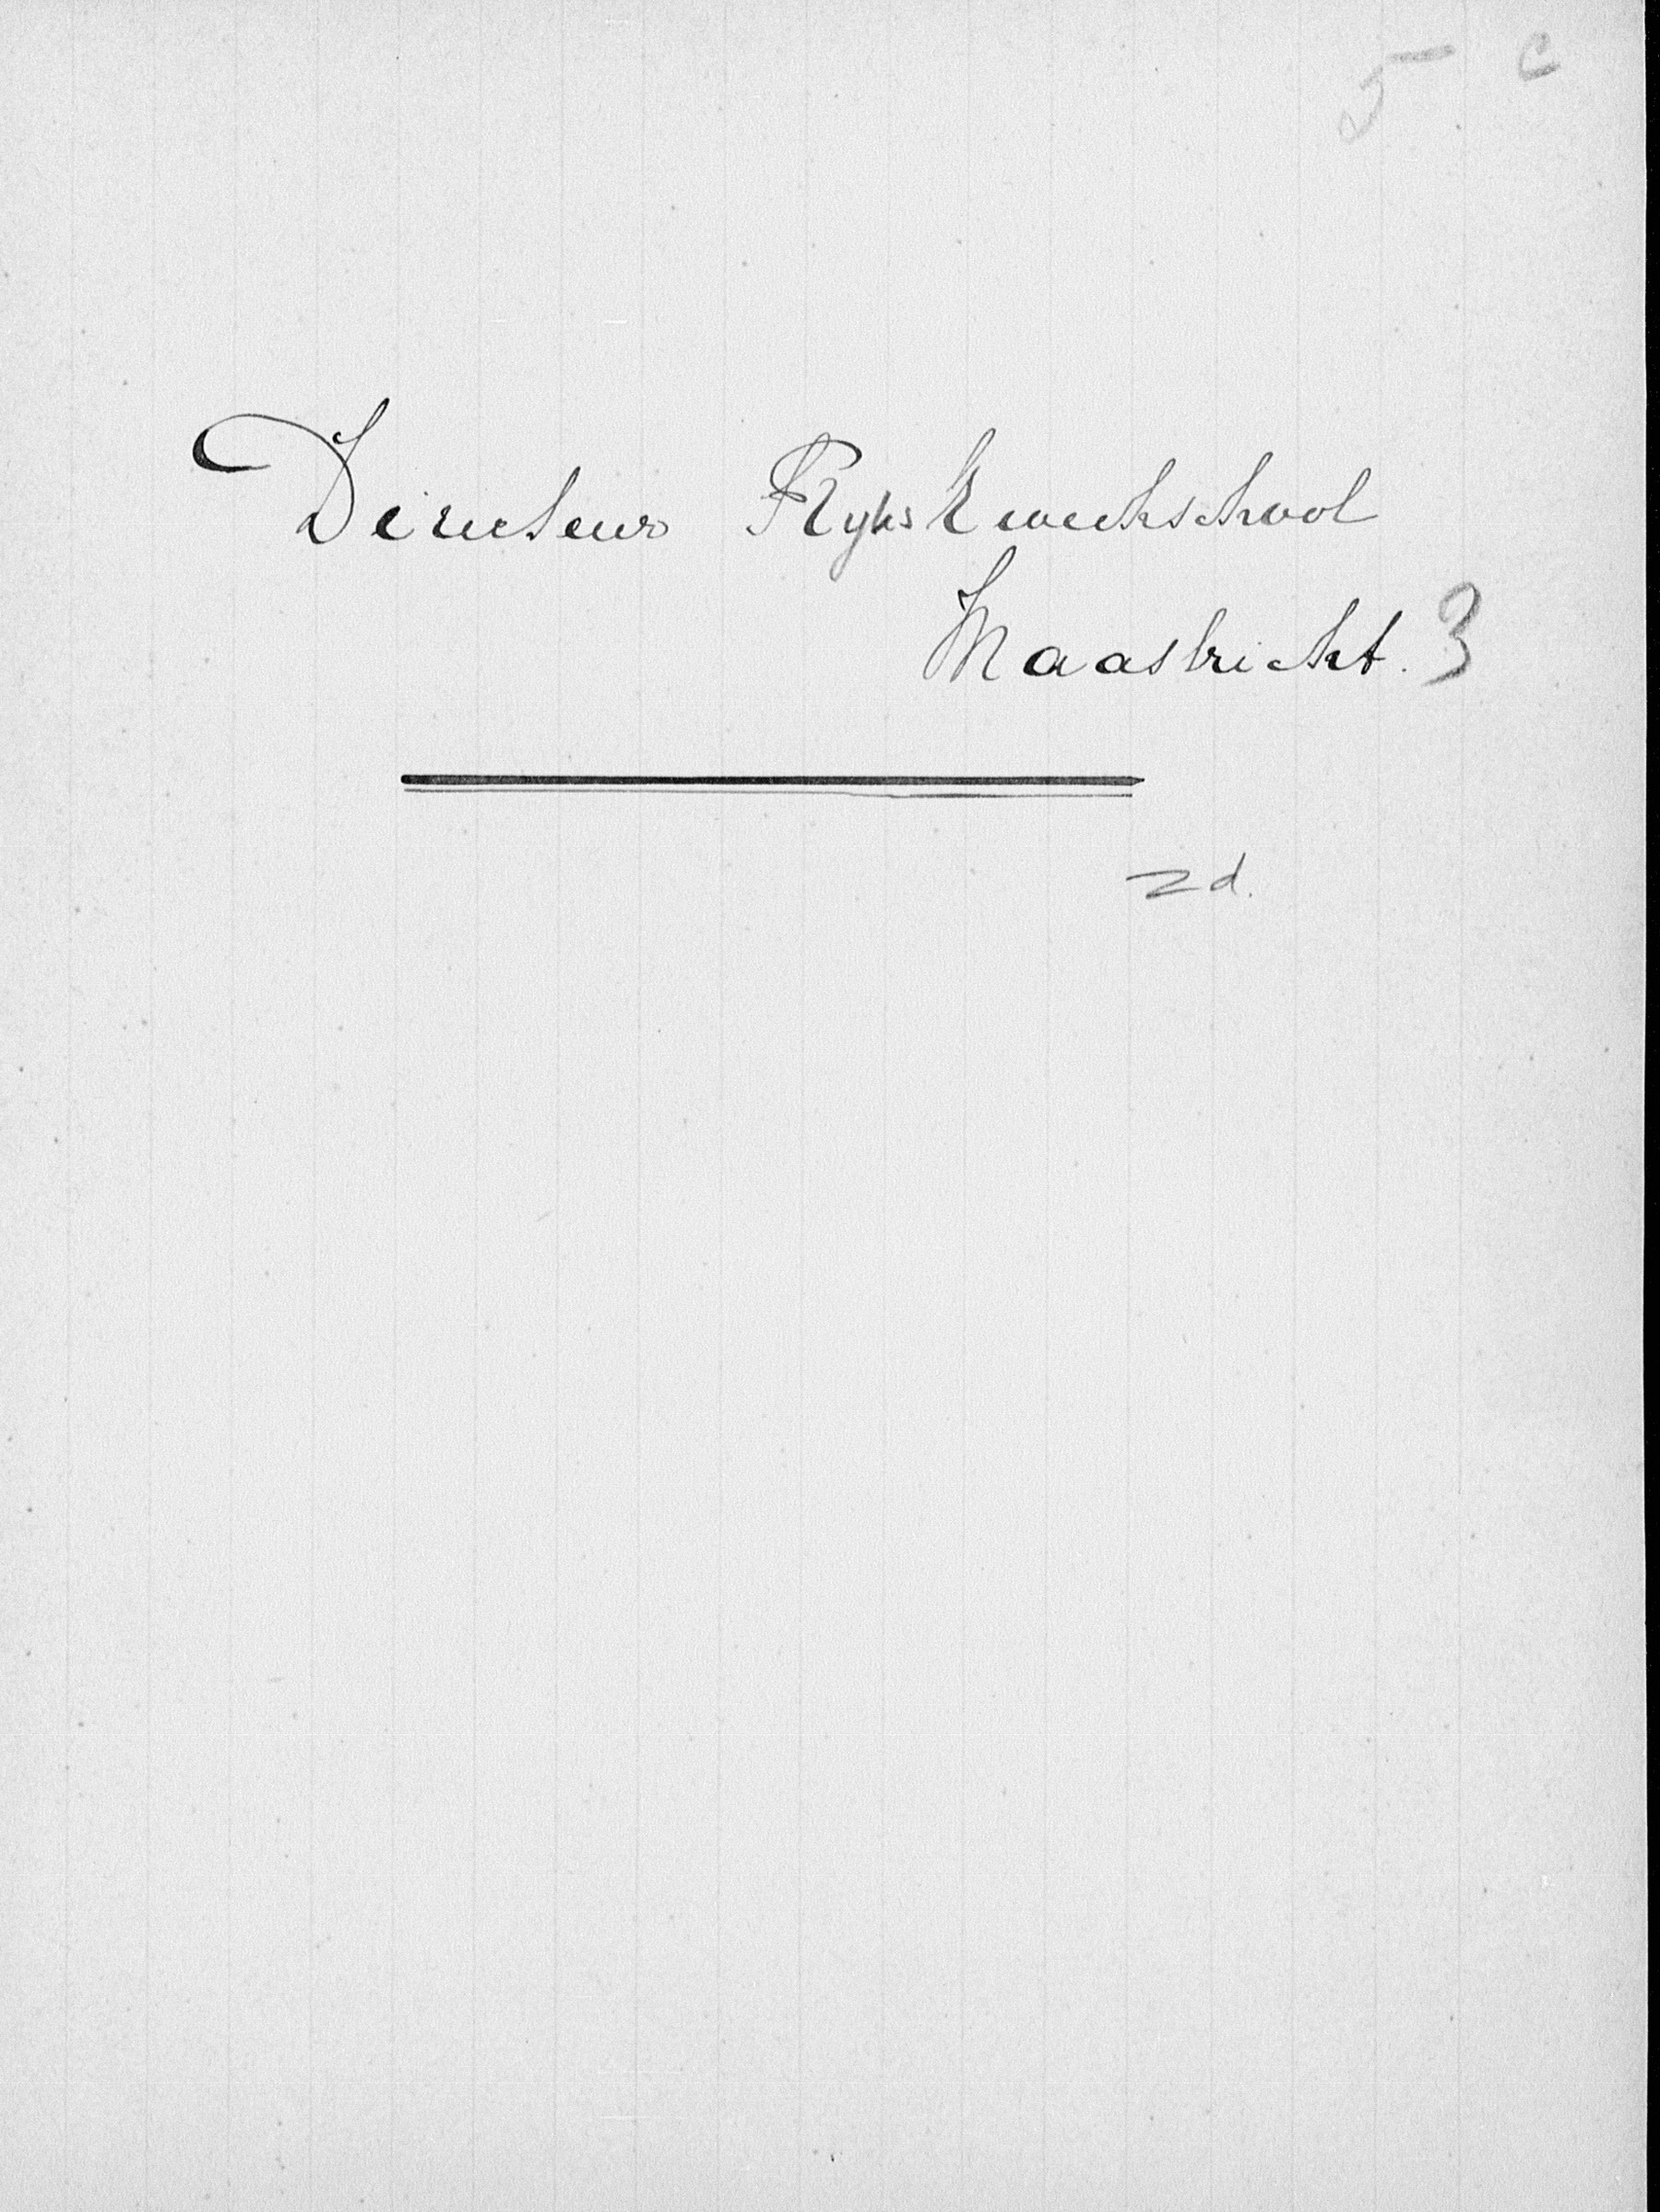 5 c
Directeur Rijks Kweekschool
Maastricht. 3
zd.